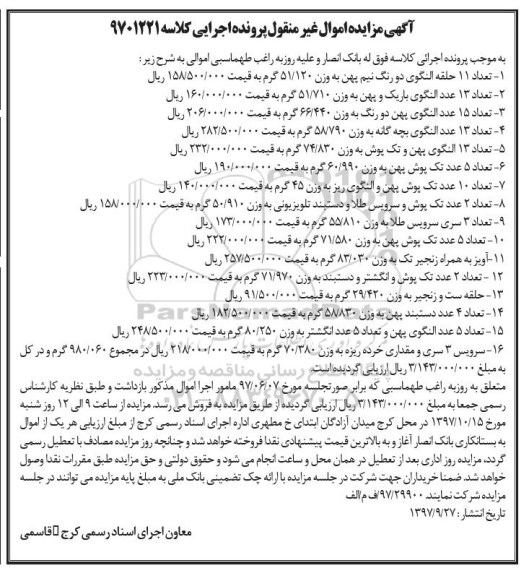 آگهی مزایده اموال غیر منقول پرونده اجرایی کلاسه ۹۷۰۱۲۲۱
به موجب پرونده اجرائی کلاسه فوق له بانک انصار و علیه روزبه راغب طهماسبی اموالی به شرح زیر:
۱- تعداد ۱۱ حلقه النگوی دو رنگ نیم پهن به وزن ۵۱/۱۲۰ گرم به قیمت ۱۵۸/۵۰۰/۰۰۰ ریال
۲- تعداد ۱۳ عدد النگوی باریک و پهن به وزن ۵۱/۷۱۰ گرم به قیمت ۱۶۰/۰۰۰/۰۰۰ ریال
۳- تعداد ۱۵ عدد النگوی پهن دو رنگ به وزن ۶۶/۴۴۰ گرم به قیمت ۲۰۶/۰۰۰/۰۰۰ ریال
۴- تعداد ۱۳ عدد النگوی بچه گانه به وزن ۵۸/۷۹۰ گرم به قیمت ۲۸۲/۵۰۰/۰۰۰ ریال
۵- تعداد ۱۳ النگوی پهن و تک پوش به وزن ۷۴/۸۳۰ گرم به قیمت ۲۳۲/۰۰۰/۰۰۰ ریال
۶- تعداد ۵ عدد تک پوش پهن به وزن ۶۰/۹۹۰ گرم به قیمت ۱۹۰/۰۰۰/۰۰۰ ریال
۷- تعداد ۱۰ عدد تک پوش پهن و النگوی ریز به وزن ۴۵ گرم به قیمت ۱۴۰/۰۰۰/۰۰۰ ریال
۸- تعداد ۲ عدد تک پوش و سرویس طلا و دستبند تلویزیونی به وزن ۵۰/۹۱۰ گرم به قیمت ۱۵۸/۰۰۰/۰۰۰ ریال
۹- تعداد ۳ سری سرویس طلا به وزن ۵۵/۸۱۰ گرم به قیمت ۱۷۳/۰۰۰/۰۰۰ ریال
۱۰- تعداد ۵ عدد تک پوش پهن به وزن ۷۱/۵۸۰ گرم به قیمت ۲۲۲/۰۰۰/۰۰۰ ریال
۱۱- آویز به همراه زنجیر تک به وزن ۸۳/۰۳۰ گرم به قیمت ۲۵۷/۵۰۰/۰۰۰ ریال
۱۲- تعداد ۲ عدد تک پوش و انگشتر و دستبند به وزن ۷۱/۹۷۰ گرم به قیمت ۲۲۳/۰۰۰/۰۰۰ ریال
۱۳- حلقه ست و زنجیر به وزن ۲۹/۴۲۰ گرم به قیمت ۹۱/۵۰۰/۰۰۰ ریال
۱۴- تعداد ۴ عدد دستبند پهن به وزن ۵۸/۸۳۰ گرم به قیمت ۱۸۲/۵۰۰/۰۰۰ ریال
۱۵- تعداد ۵ عدد النگوی پهن و تعداد ۵ عدد انگشتر به وزن ۸۰/۲۵۰ گرم به قیمت ۲۴۸/۵۰۰/۰۰۰ ریال
۱۶- سرویس ۳ سری و مقداری خرده ریزه به وزن ۷۰/۳۸۰ گرم به قیمت ۲۱۸/۰۰۰/۰۰۰ ریال در مجموع ۹۸۰/۰۶۰ گرم و در کل
به مبلغ ۳/۱۴۳/۰۰۰/۰۰۰ ریال ارزیابی گردیده است.
متعلق به روزبه راغب طهماسبی که برابر صورتجلسه مورخ ۹۷/۰۶/۰۷ مامور اجرا اموال مذکور بازداشت و طبق نظریه کارشناس
رسمی جمعا به مبلغ ۳/۱۴۳/۰۰۰/۰۰۰ ریال ارزیابی گردیده از طریق مزایده به فروش می رسد. مزایده از ساعت ۹ الی ۱۲ روز شنبه
مورخ ۱۳۹۷/۱۰/۱۵ در محل کرج میدان آزادگان ابتدای خ مطهری اداره اجرای اسناد رسمی کرج از مبلغ ارزیابی هر یک از اموال
به بستانکاری بانک انصار آغاز و به بالاترین قیمت پیشنهادی نقدا فروخته خواهد شد و چنانچه روز مزایده مصادف با تعطیل رسمی
گردد، مزایده روز اداری بعد از تعطیل در همان محل و ساعت انجام می شود و حقوق دولتی و حق مزایده طبق مقررات نقدا وصول
خواهد شد. ضمنا خریداران جهت شرکت در جلسه مزایده با ارائه چک تضمینی بانک ملی به مبلغ پایه مزایده می توانند در جلسه
مزایده شرکت نمایند. ۹۷/۲۹۹۰۰/ف م/الف
تاریخ انتشار: ۱۳۹۷/۹/۲۷
معاون اجرای اسناد رسمی کرج قاسمی